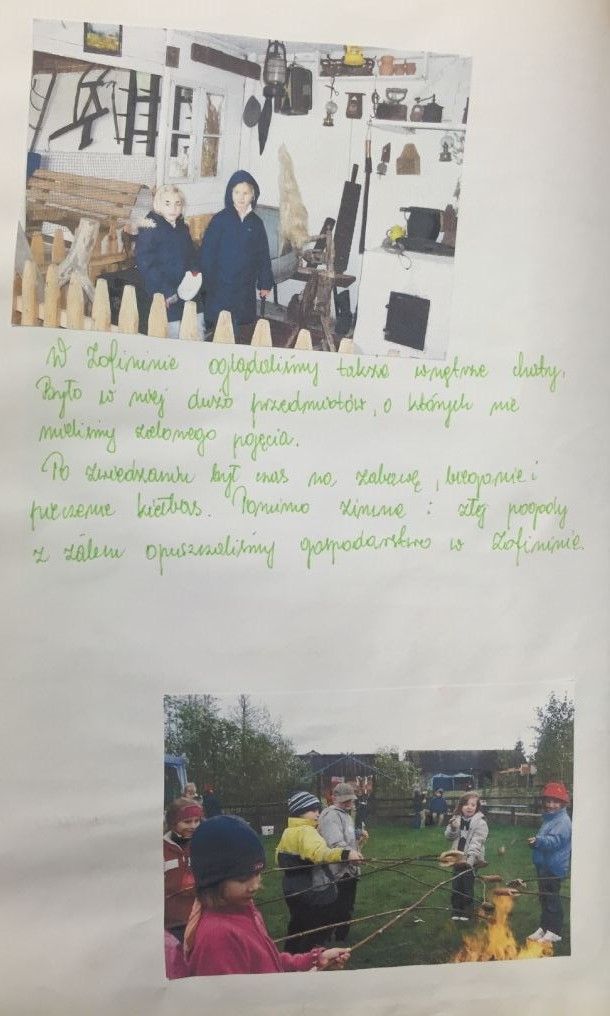 W Zofininie oglądaliśmy także wnętrze chaty.
Było w niej dużo przedmiotów, o których nie
mieliśmy zielonego pojęcia.
Po zwiedzaniu był czas na zabawę, bieganie i
pieczenie kiełbas. Pomimo zimna i złej pogody
z żalem opuszczaliśmy gospodarstwo w Zofininie.